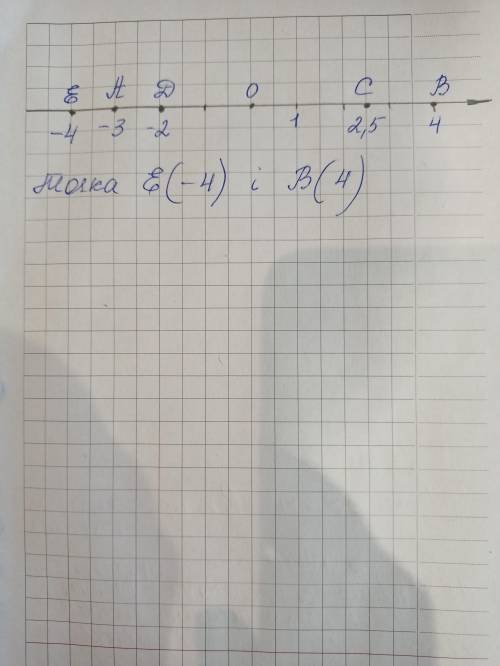 E A D O C B
-4 -3 -2 1 2,5 4
Точка E(-4) і B(4)